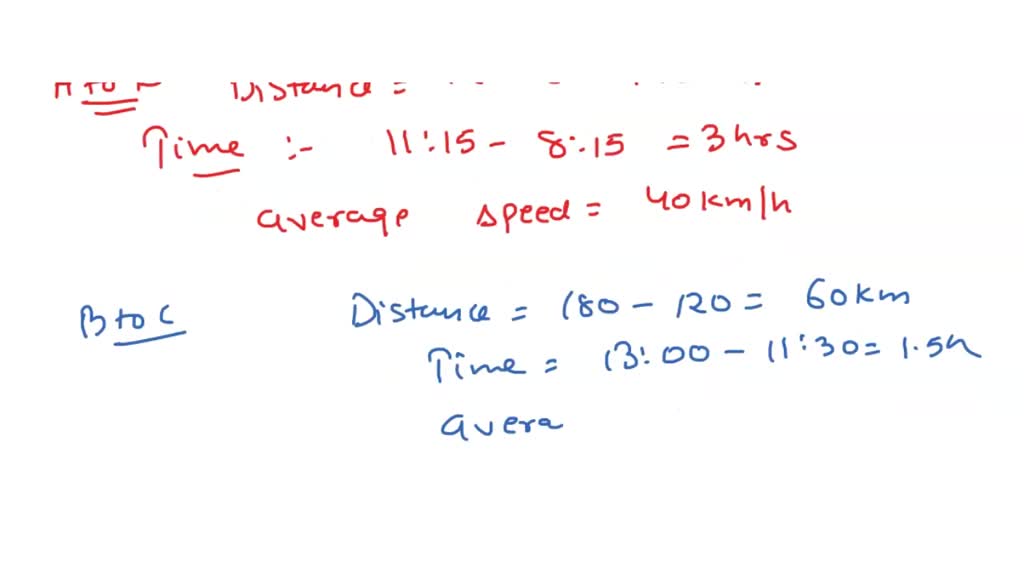 A to B Distance =
Time :- 11:15 - 8:15 = 3 hrs
average speed = 40 km/h
B to C Distance = 180 - 120 = 60 km
Time = 13:00 - 11:30 = 1.5h
avera